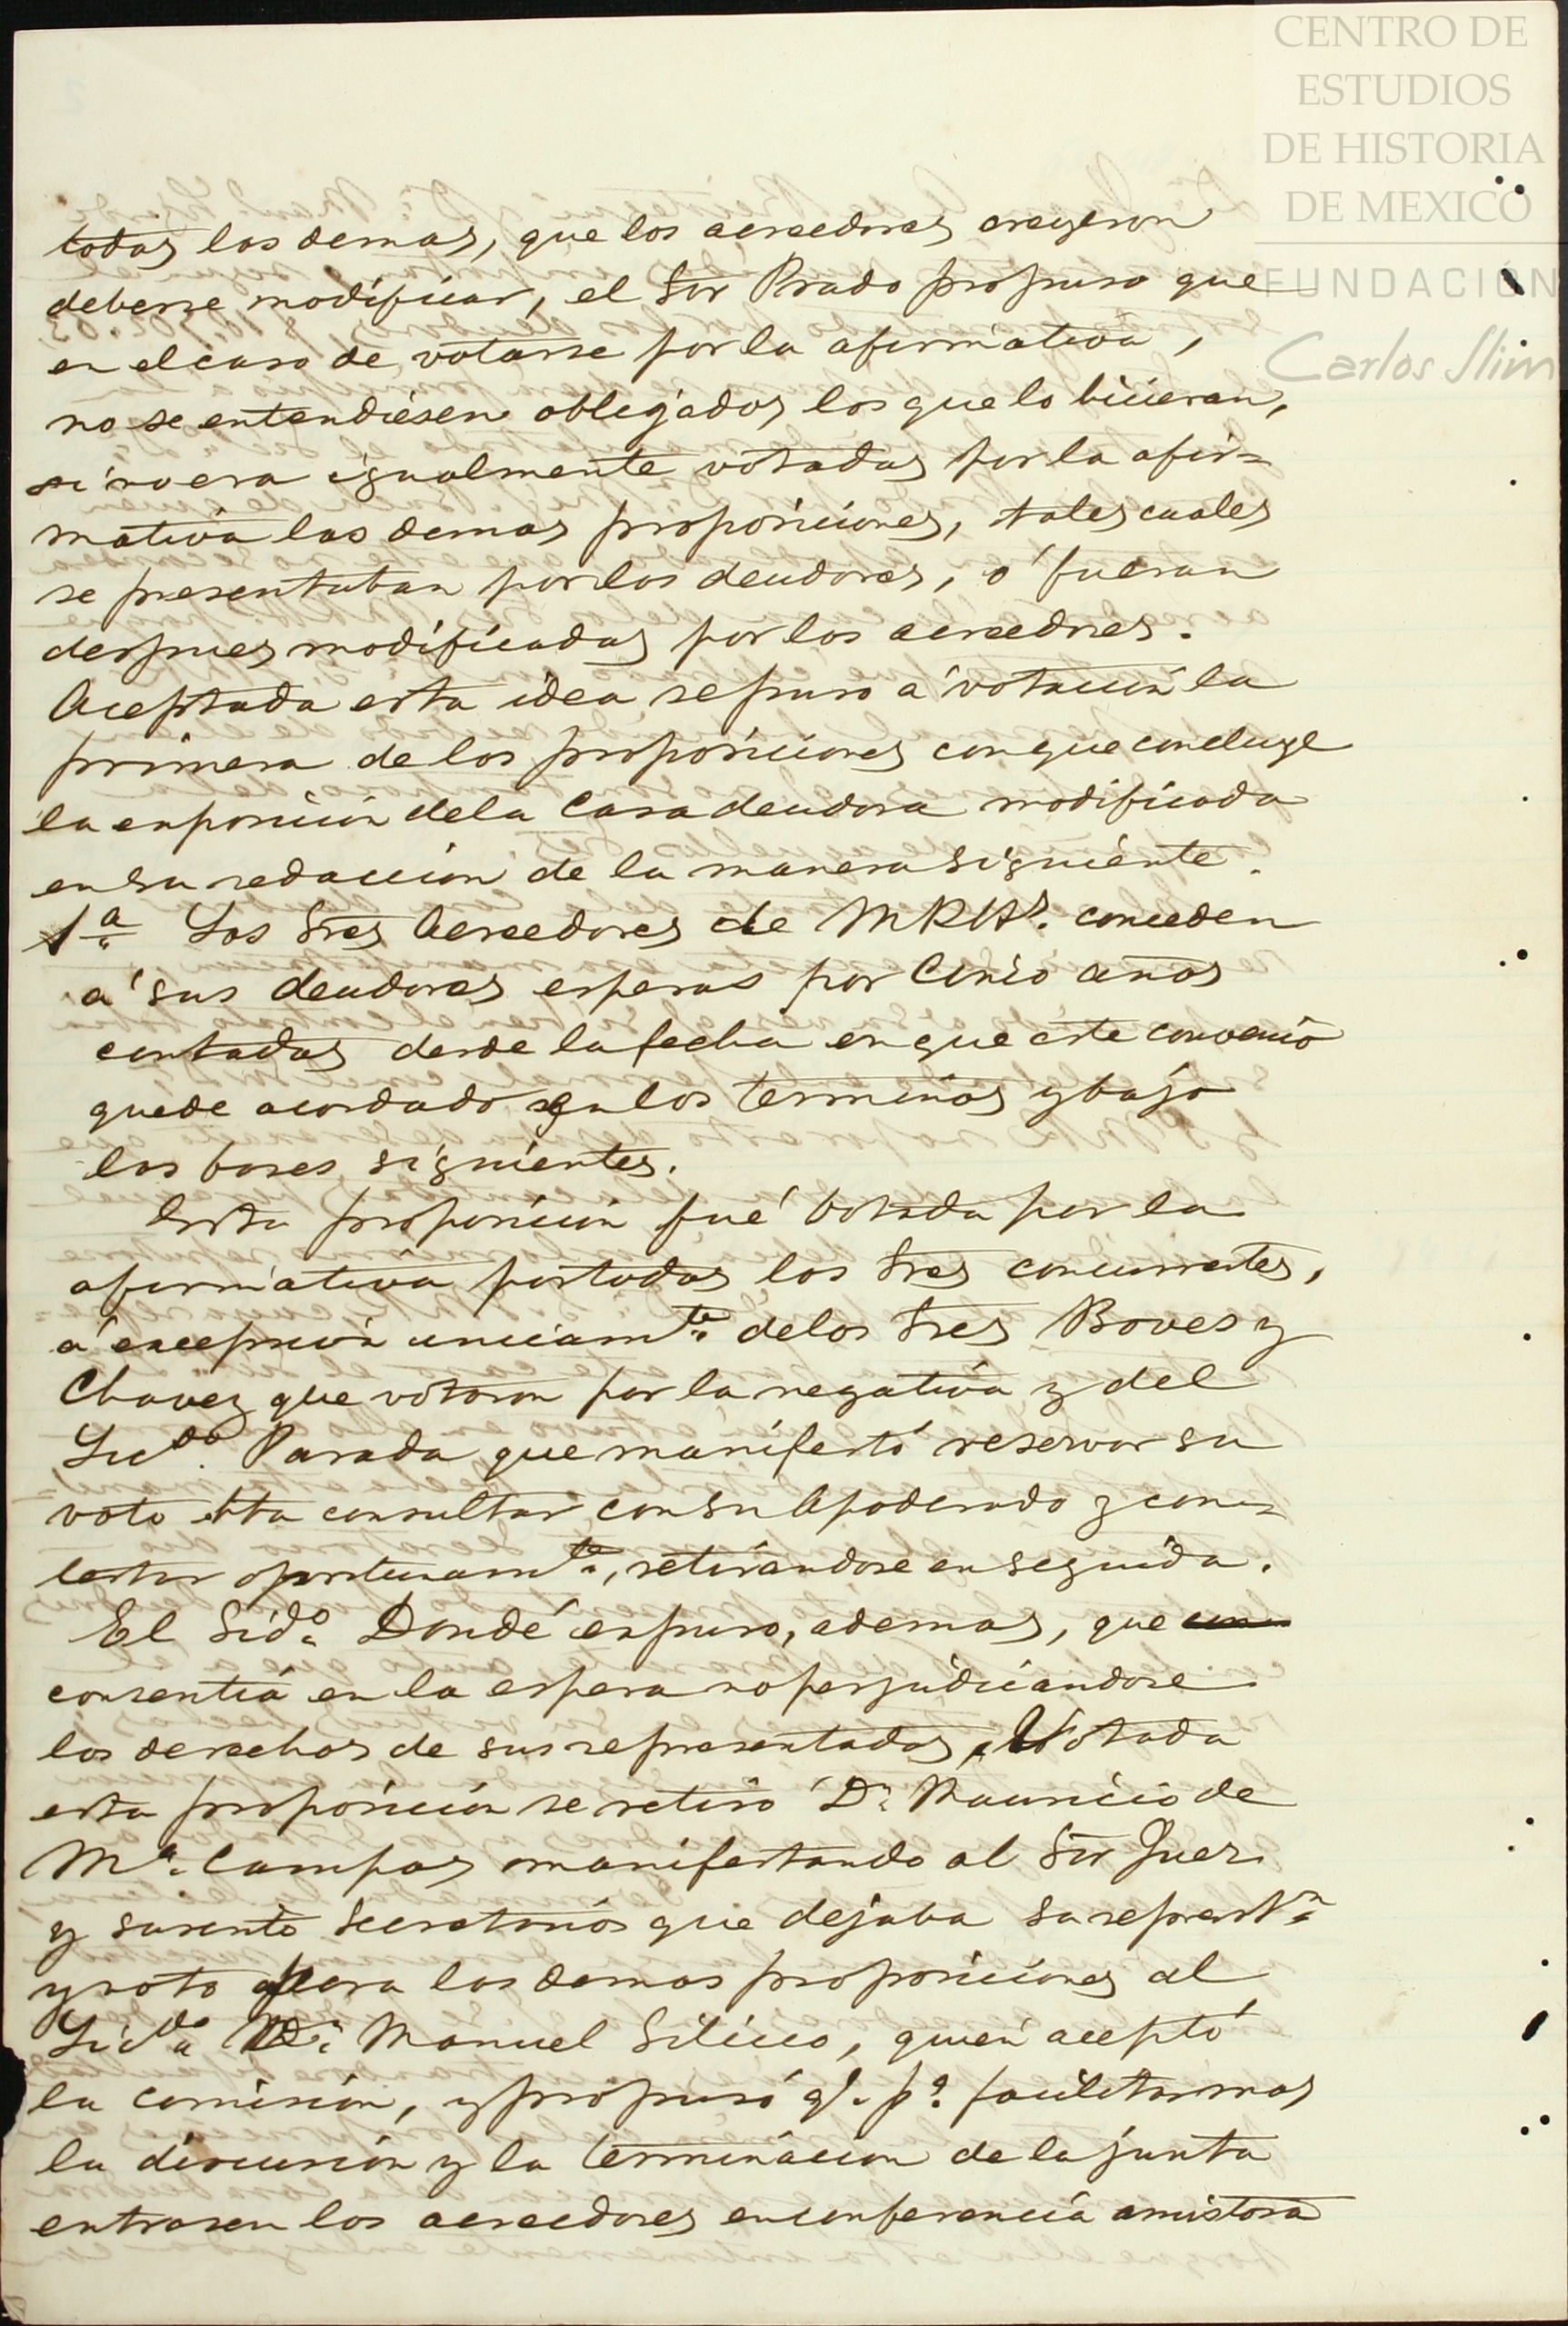 CENTRO DE
ESTUDIOS
DE HISTORIA
DE MEXICO
FUNDACIÓN
Carlos Slim
todas las demas, que los acreedores creyeron
deberse modificar, el Sor Prado propuso que
en el caso de votarse por la afirmativa,
no se entendiesen obligados los que lo hicieran,
si no era igualmente votadas por la afir=
mativa las demas proposiciones, tales cuales
se presentaban por los deudores, ó fueran
despues modificadas por los acreedores.
Aceptada esta idea se puso á votacion la
primera de las proposiciones con que concluye
la exposicion de la Casa deudora modificada
en su redaccion de la manera siguiente.
1a. Los Sres Acreedores de MRHs. conceden
á sus deudores esperas por Cinco años
contados desde la fecha en que este convenio
quede acordado en los terminos y bajo
las bases siguientes.
Esta proposicion fué votada por la
afirmativa por todos los Sres concurrentes,
á excepcion unicamte. de los Sres Boves y
Chavez que votaron por la negativa y del
Licdo. Parada que manifestó reservar su
voto hta consultar con su Apoderado y con=
testar oportunamte., retirandose en seguida.
El Lido. Dondé expuso, ademas, que
consentia en la espera no perjudicandose
los derechos de sus representados. Votada
esta proposicion se retiró Dn. Mauricio de
Ma. Campos manifestando al Sor Juez
y su Secretarios que dejaba su represtn.
y voto para las demas proposiciones al
Licdo. Dn. Manuel Siliceo, quien aceptó
la comision, y propusó q. pa. facilitar mas
la discusion y la terminacion de la junta
entrasen los acreedores en conferencia amistosa